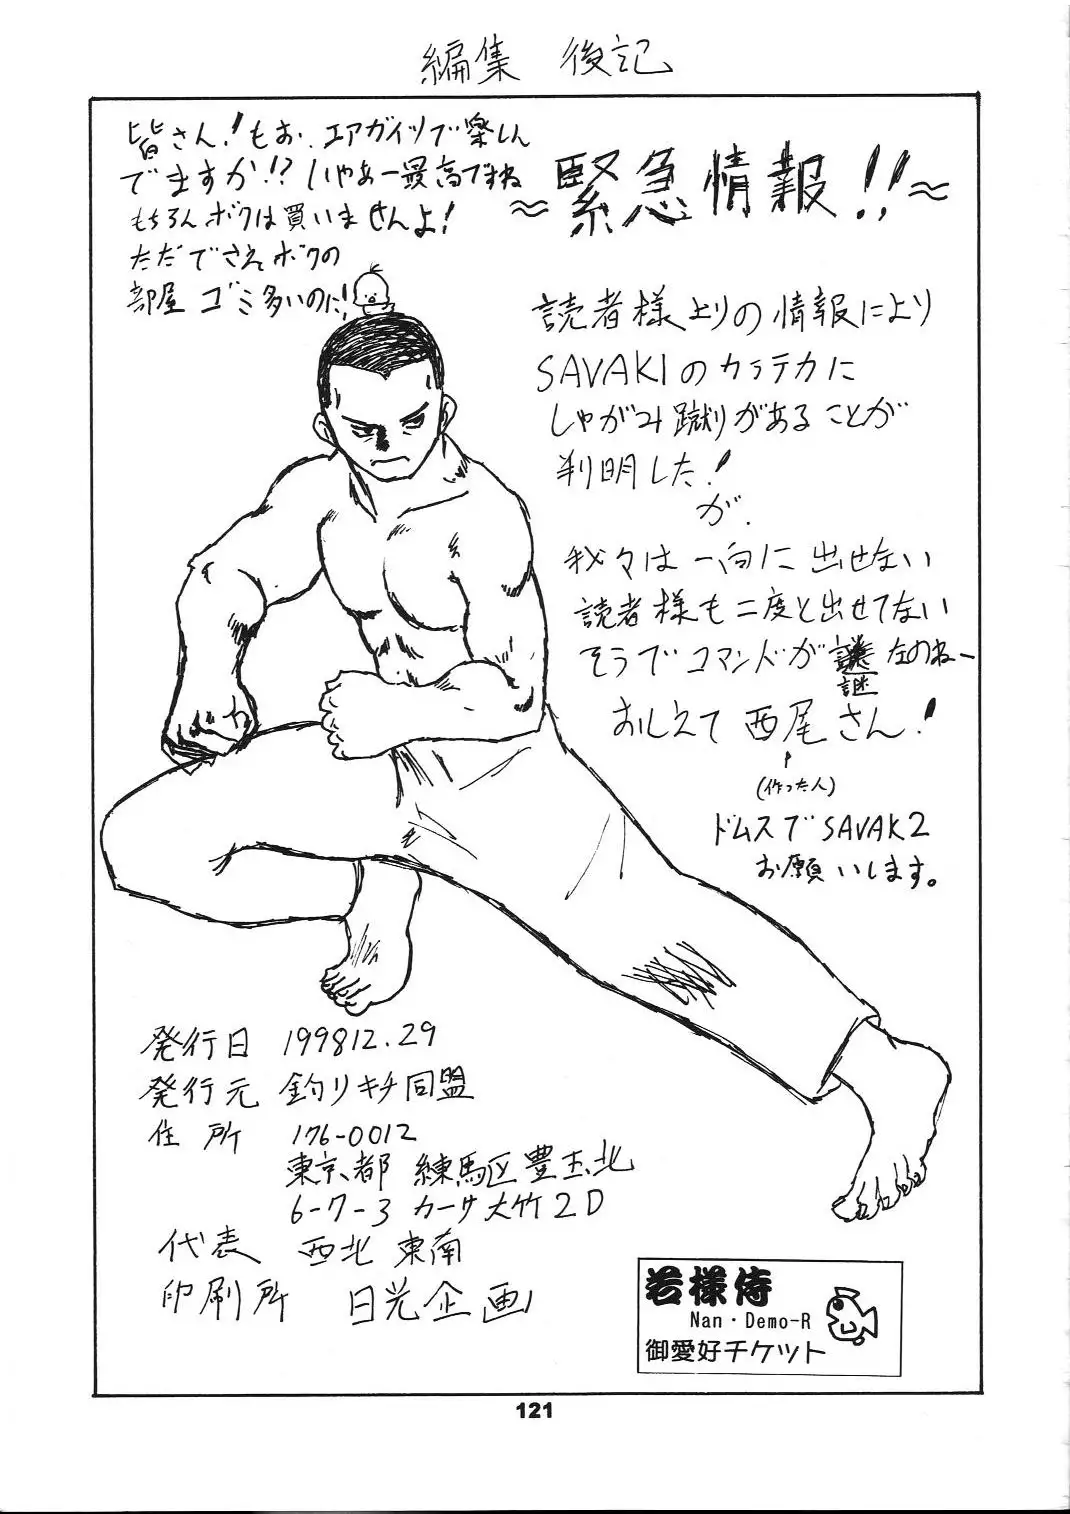 編集 後記
皆さん！もお、エアガイツで楽しん
でますか!? いやあー最高ですね
もちろんボクは買いませんよ！
ただでさえボクの
部屋 ゴミ多いのに！
≈緊急情報!!≈
読者様よりの情報により
SAVAKIのカラテカに
しゃがみ蹴りがあることが
判明した！
が、
我々は一向に出せない
読者様も二度と出せてない
そうでコマンドが謎なのねー
謎
おしえて西尾さん！
(作った人)
ドムスでSAVAK2
お願いします。
発行日 199812.29
発行元 釣りキチ同盟
住所 176-0012
東京都 練馬区豊玉北
6-7-3 カーサ大竹2D
代表 西北東南
印刷所 日光企画
若様侍
Nan・Demo-R
御愛好チケット
121